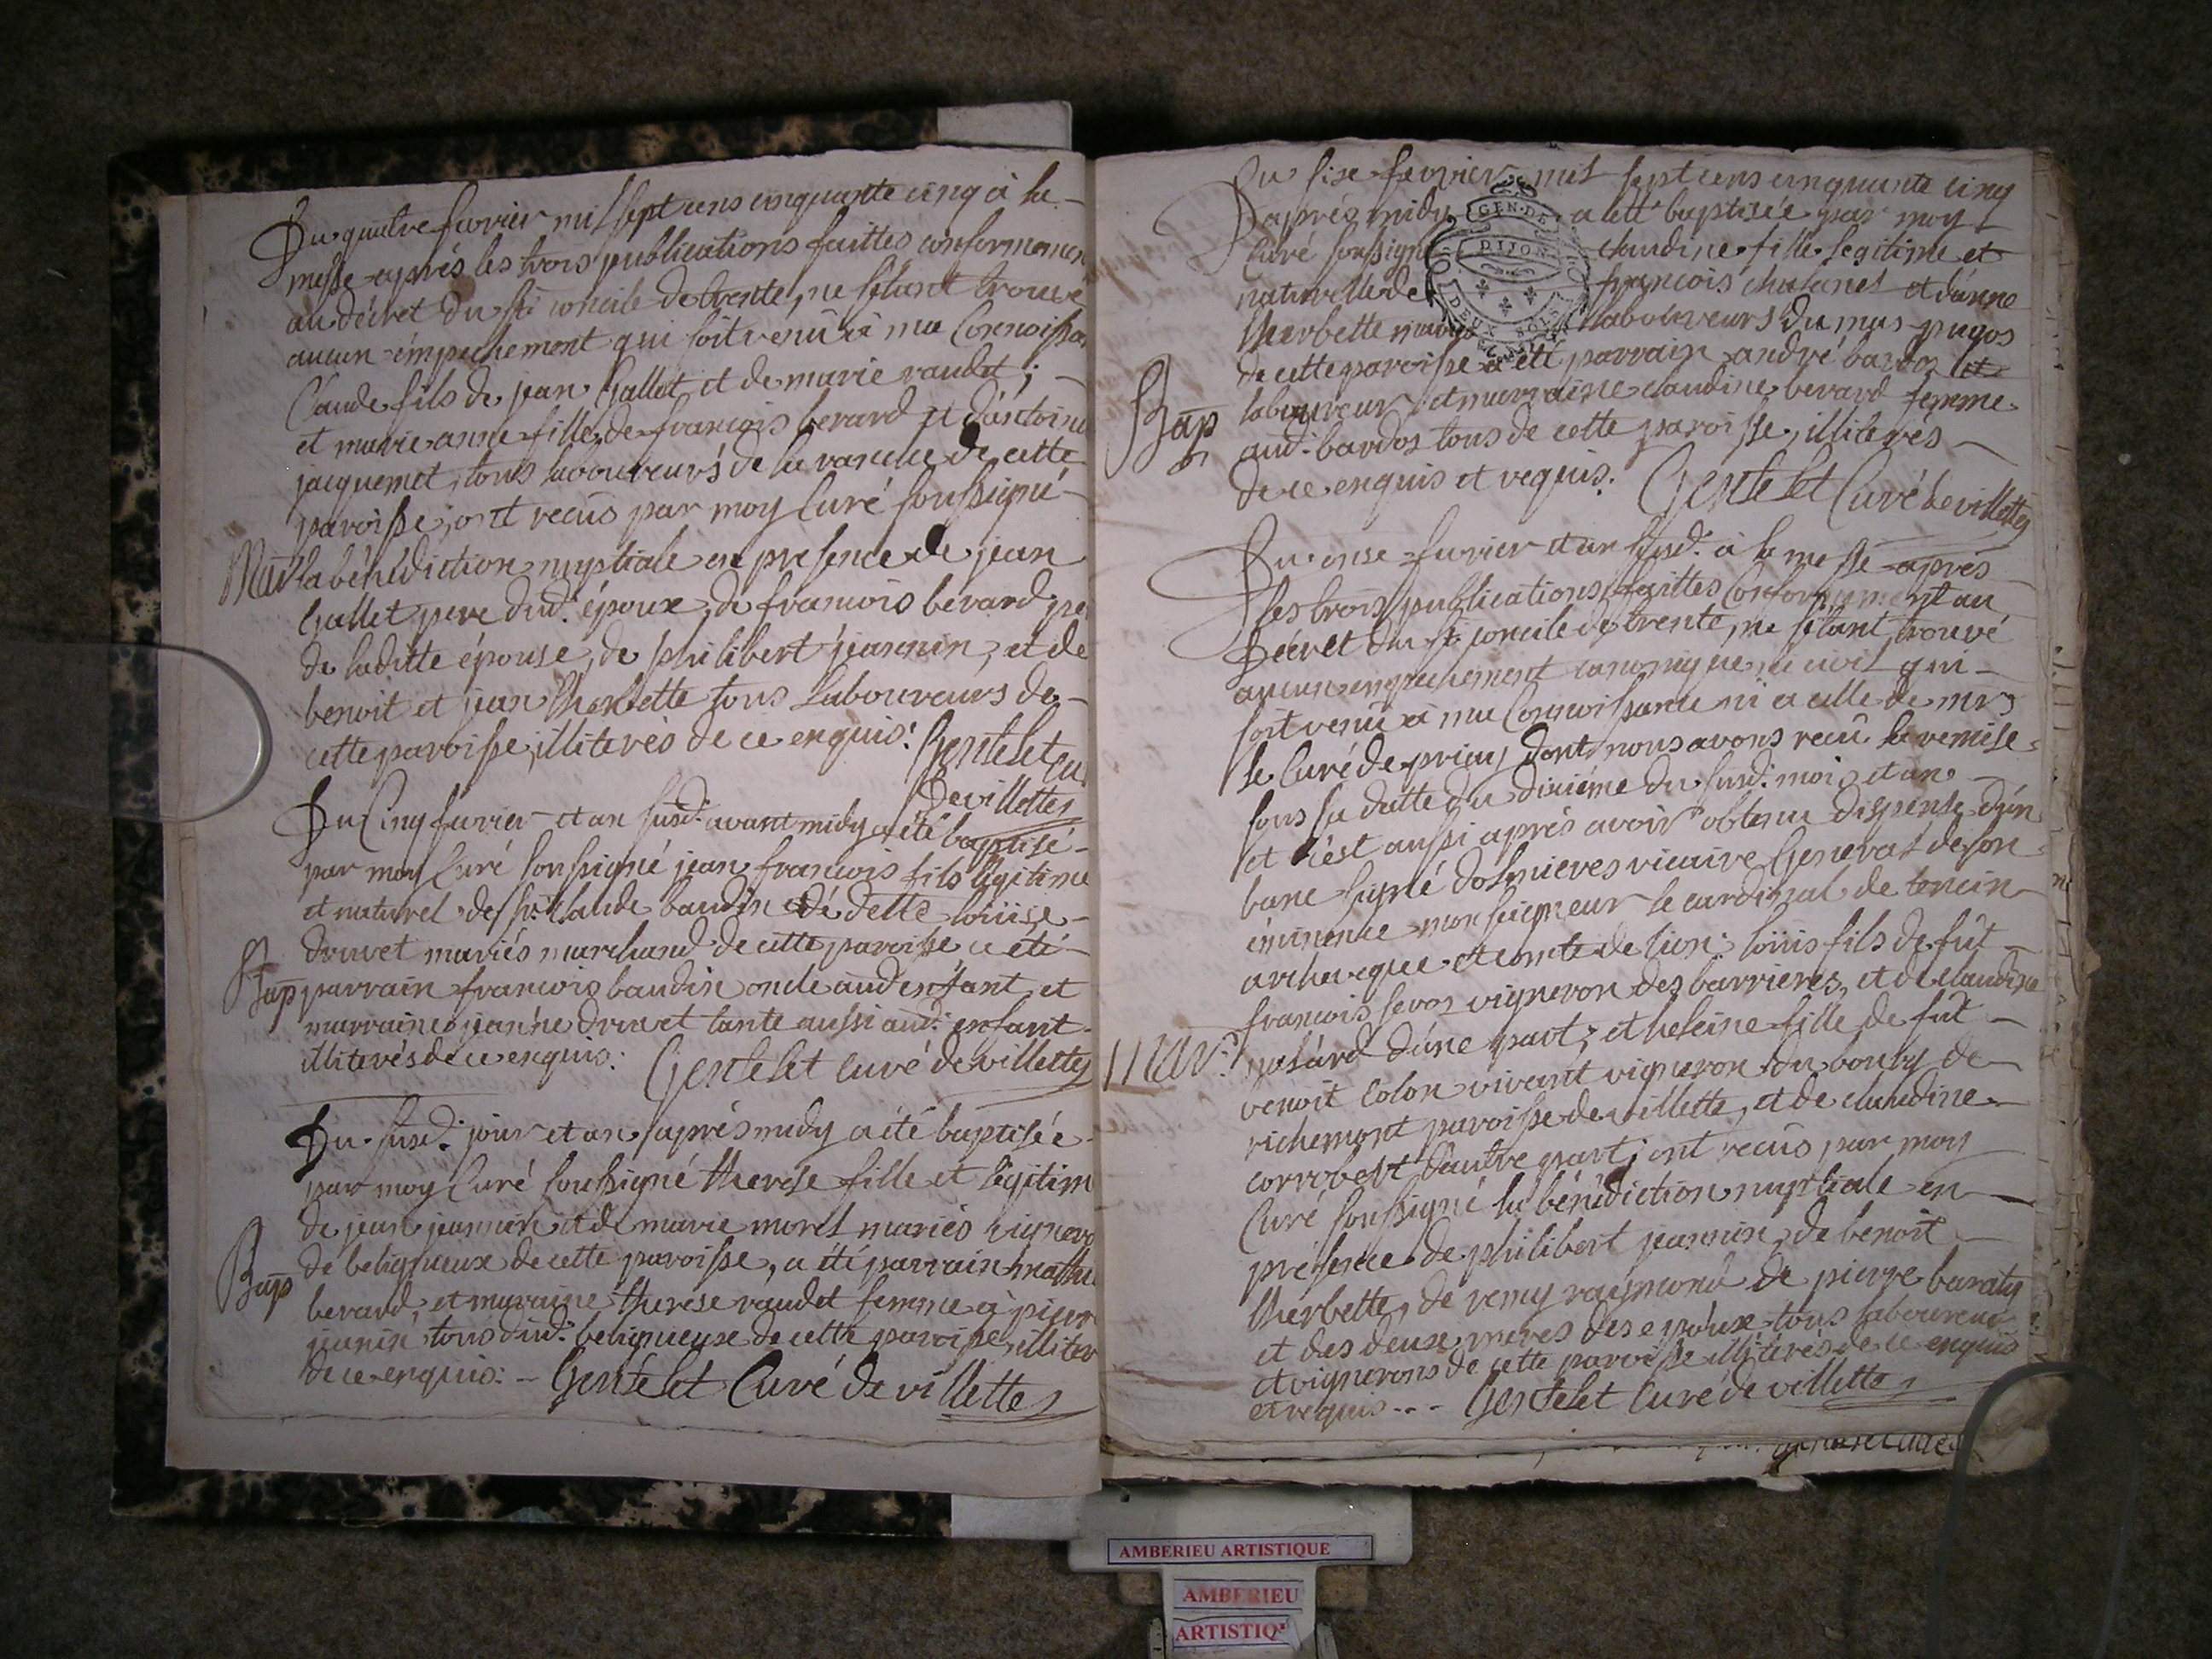 Du quatre fuvrier mil sept cens cinquante cinq à la
messe après les trois publications faittes conformemen
au décret du st concile de trente, ne sétant trouvé
aucun émpechement qui soit venû à ma Connoissan
Claude fils de jean Gallet et de marie raudet ;
et marie anne fille de francois berard et d'antoine
jacquemet, tous laboureurs de la ranche de cette
paroisse, ont recûs par moy Curé soussigné
Mar la bénédiction nuptiale en presence de jean
Gallet pere dud. époux, de francois berard pe
de laditte épouse, de philibert jeannin, et de
benoit et jean therbette tous laboureurs de
cette paroisse, illiterés de ce enquis. Gentelet cu
De villettes
Du Cinq fuvrier et an susd. avant midy a été baptisé
par moy Curé soussigné jean francois fils légitime
et naturel de sr. Claude baudin et de dette loüise
druvet mariés marchand de cette paroisse a été
Bap parrain francois baudin oncle aud enfant et
marraine jeanne druvet tante aussi aud. enfant
illiterés de ce enquis. Gentelet curé de villettes
Du susd. jour et an après midy a été baptisée
par moy Curé soussigné therese fille et légitim
de jean jeannin et de marie morel mariés vignero
de beligneux de cette paroisse, a été parrain mathie
Bap
berard, et maraine therese raudet femme à pierr
jeanin tous dud. beligneuse de cette paroisse, illiter
de ce enquis. - Gentelet Curé de villettes
Du sixe fevrier mil sept cens cinquante cinq
après midy a ett baptisée par moy
Curé soussigné claudine fille legitime et
naturelle de francois chalanet et d'anne
therbette mariés laboureurs du mas pugos
de cette paroisse a été parrain andré bardos et
Bap
laboureur et marraine claudine berard femme
aud. bardos tous de cette paroisse, illiterés
de ce enquis et requis. Gentelet Curé de villettes
Du onse fuvrier et an susd. à la messe après
les trois publications faittes Conformement au
Décret du st. concile de trente, ne sétant trouvé
aucun empechement canonique ni civil qui
soit venû à ma Connoissance ni a celle de mrs
le Curé de priay dont nous avons recû la remise
sous sa datte du dixiéme du susd. mois et an
et c'est aussi après avoir obtenu dispense d'un
banc signé dosmieres vicaire General de son
éminence monseigneur le cardinal de tencin
archeveque et comte de lion: loüis fils de fût
francois seros vigneron des barrieres, et de claudine
Mar.
pasard d'une part; et heleine fille de fût
benoit colon vivant vigneron du bourg de
richemont paroisse de villette, et de claudine
corrobert d'autre part; ont recûs par moy
Curé soussigné la bénédiction nuptiale en
présence de philibert jeannin, de benoit
therbette, de remy raymond de pierre baraty
et des deux meres des époux tous laboureurs
et vignerons de cette paroisse illiterés de ce enquis
et requis - - - Gentelet curé de villettes
GEN. DE
DIJON
DEUX SOLS
AMBERIEU ARTISTIQUE
AMBERIEU
ARTISTIQ